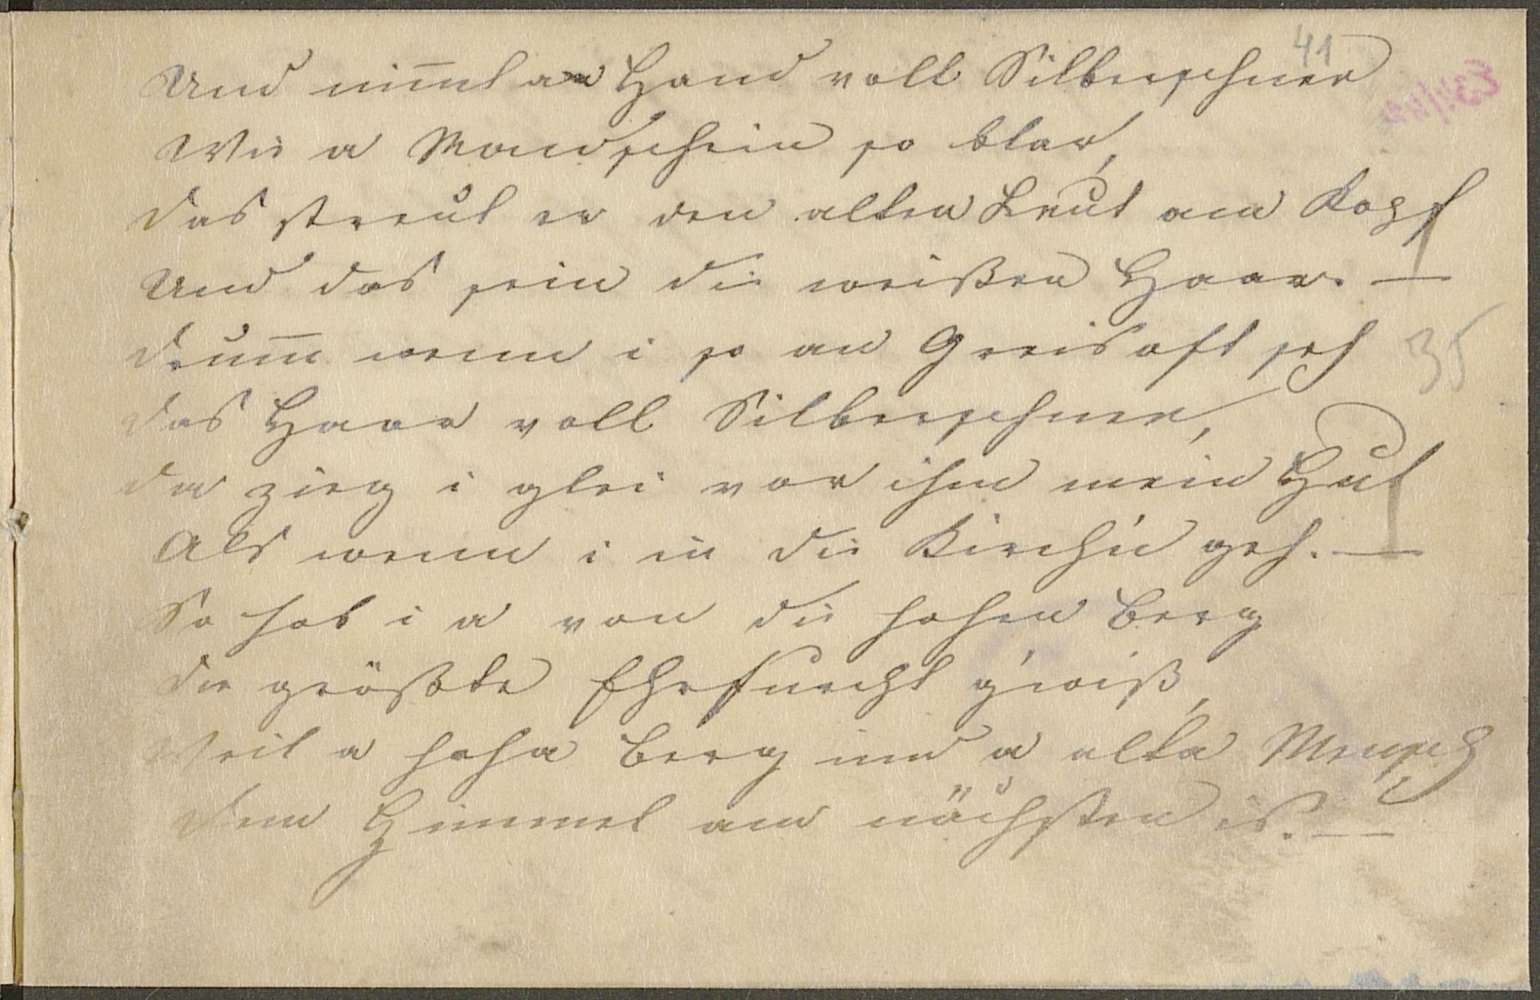 41
Und nim̄t a Hand voll Silberschnee
Wie a Mondschein so klar,
das streut er den alten Leut am Kopf
Und das sein die weißen Haar. —
drum̄ wenn i so an Greis oft seh
35
das Haar voll Silberschnee,
da zieg i glei vor ihm mein Hut
Als wenn i in die Kirch'n geh. —
So hab i a von die hohen Berg
die größte Ehrfurcht g'wiß,
Weil a hoha Berg und a alta Mensch
dem Himmel am nächsten is. —